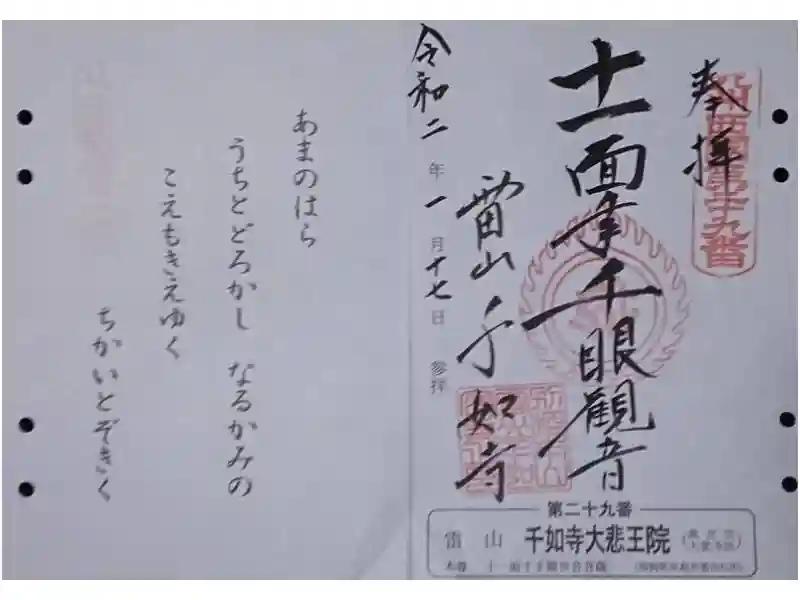 九州西国第廿九番
奉拝
十一面千手千眼観音
雷山千如寺
令和二年一月十七日 参拝
第二十九番
雷山 千如寺大悲王院
本尊 十一面千手観世音菩薩
あまのはら
うちとどろかし なるかみの
こえもきえゆく
ちかいとぞきく